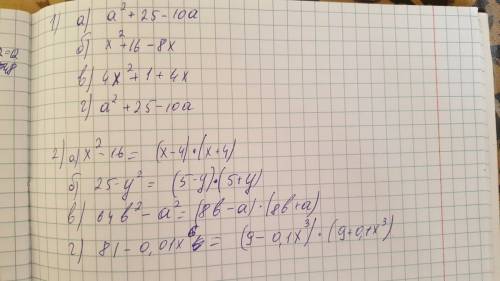 1) а) a² + 25 - 10a
б) x² + 16 - 8x
в) 4x² + 1 + 4x
г) a² + 25 - 10a
2) а) x² - 16 = (x-4)·(x+4)
б) 25 - y² = (5-y)·(5+y)
в) 64b² - a² = (8b-a)·(8b+a)
г) 81 - 0,01x⁶ = (9-0,1x³)·(9+0,1x³)